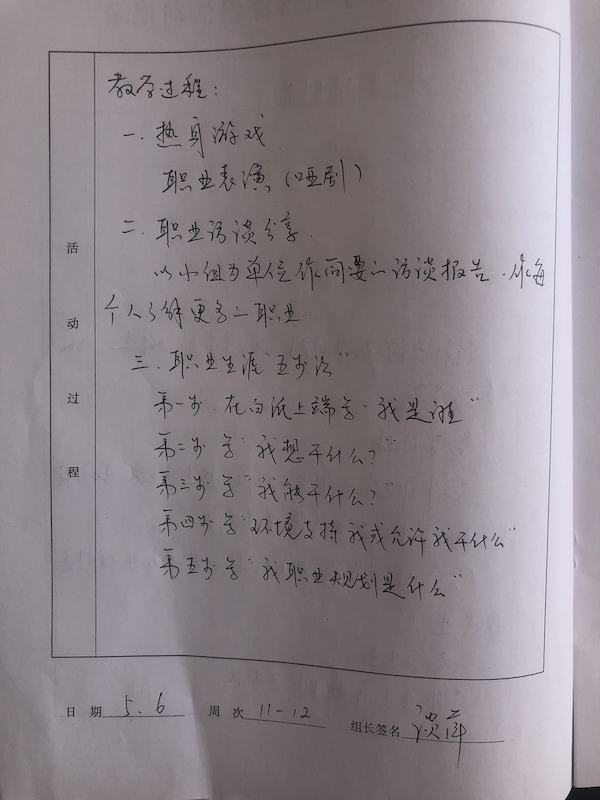 教学过程：
一．热身游戏
职业表演（哑剧）
二．职业访谈分享．
以小组为单位作简要的访谈报告．使每
个人了解更多的职业．
三．职业生涯"五步法"
第一步．在白纸上端写"我是谁"
第二步 写"我想干什么？"
第三步 写"我能干什么？"
第四步 写"环境支持我或允许我干什么"
第五步 写"我职业规划是什么"
活动过程
日 期 5.6 周 次 11-12 组长签名